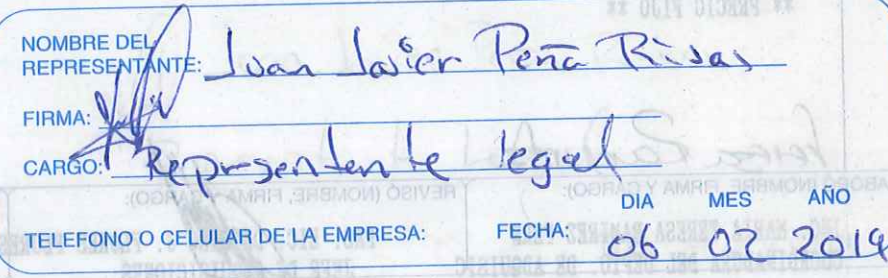 NOMBRE DEL
REPRESENTANTE: Juan Javier Peña Rivas
FIRMA:
CARGO: Representante legal
DIA MES AÑO
TELEFONO O CELULAR DE LA EMPRESA: FECHA: 06 02 2019